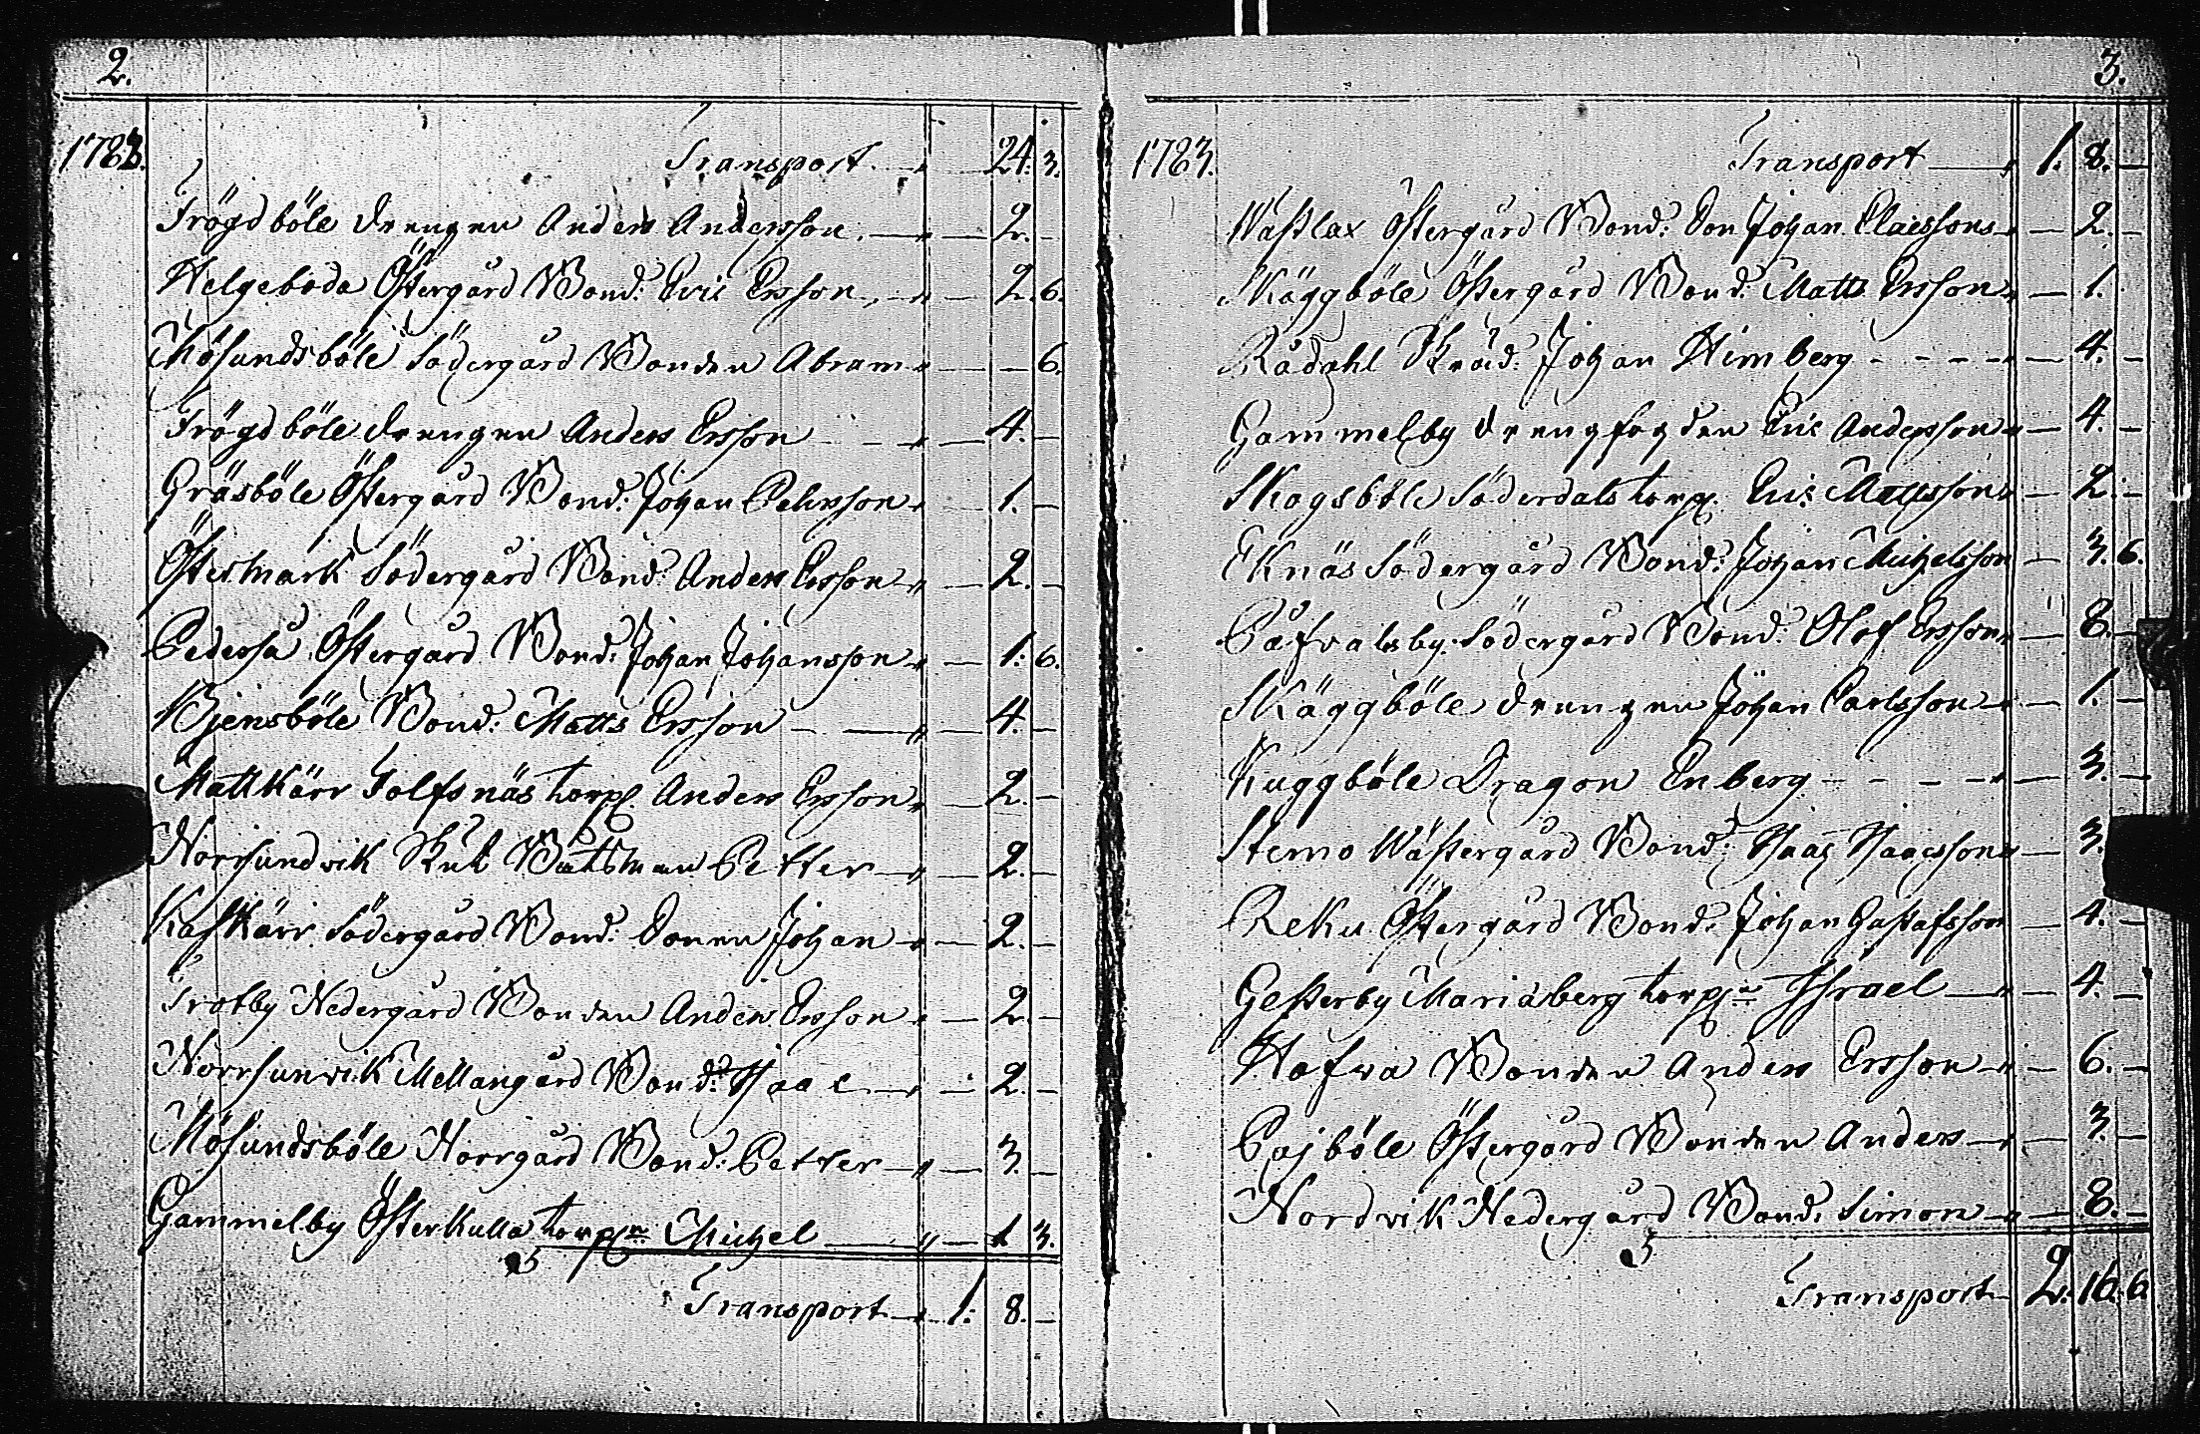 2.
1783. Transport — " — 24. 3.
Frögdböle drengen Anders Andersson — " — 2. —
Helgeboda Östergård Bond: Eric Ersson — " — 2. 6.
Mösundsböle Södergård Bonden Abram " — — 6.
Frögdböle drengen Anders Ersson — " — 4. —
Gräsböle Östergård Bond: Johan Pehrsson " — 1. —
Östermark Södergård Bond: Anders Ersson " — 2. —
Pederså Östergård Bond: Johan Johansson " — 1: 6.
Bjensböle Bond: Matts Ersson — — " — 4. —
Mattkärr Tolfsnäs torp. Anders Ersson " — 2. —
Norrsundvik Rut Båtsman Petter — " — 2. —
Kaskärr Södergård Bond: Sonen Johan " — 2. —
Trotby Nedergård Bonden Anders Ersson " — 2. —
Norrsunvik Mellangård Bond: Isaac — " — 2. —
Mösundsböle Norrgård Bond: Petter — " — 3. —
Gammelby Österkulla torp:n Michel — " — 1 3.
Transport — " 1: 8. —
3.
1783. Transport — " 1. 8. —
Waßlax Östergård Bond: Son Johan Claessons " — 2. —
Skäggböle Östergård Bond: Matts Ersson " — 1.
Rådahl Skräd: Johan Himberg - - - - " — 4. —
Gammelby drengfogden Eric Andersson " — 4. —
Skogsböle Söderdals torp. Eric Mattsson " — 2. —
Eknäs Södergård Bond: Johan Michelsson — 3. 6.
Påfvalsby Södergård Bond: Olof Ersson " — 8. —
Skäggböle drengen Johan Carlsson " — 1. —
Kuggböle Dragon Enberg - - - - " — 3. —
Stemo Wästergård Bond: Isaac Isaacsson " — 3.
Reku Östergård Bond: Johan Gustafsson — 4. —
Gesterby Mariäberg torp:n Israel — " — 4. —
Hafva Bonden Anders Ersson " — 6. —
Pajböle Östergård Bonden Anders " — 3. —
Nordvik Nedergård Bond: Simon " — 8. —
Transport 2. 16. 6